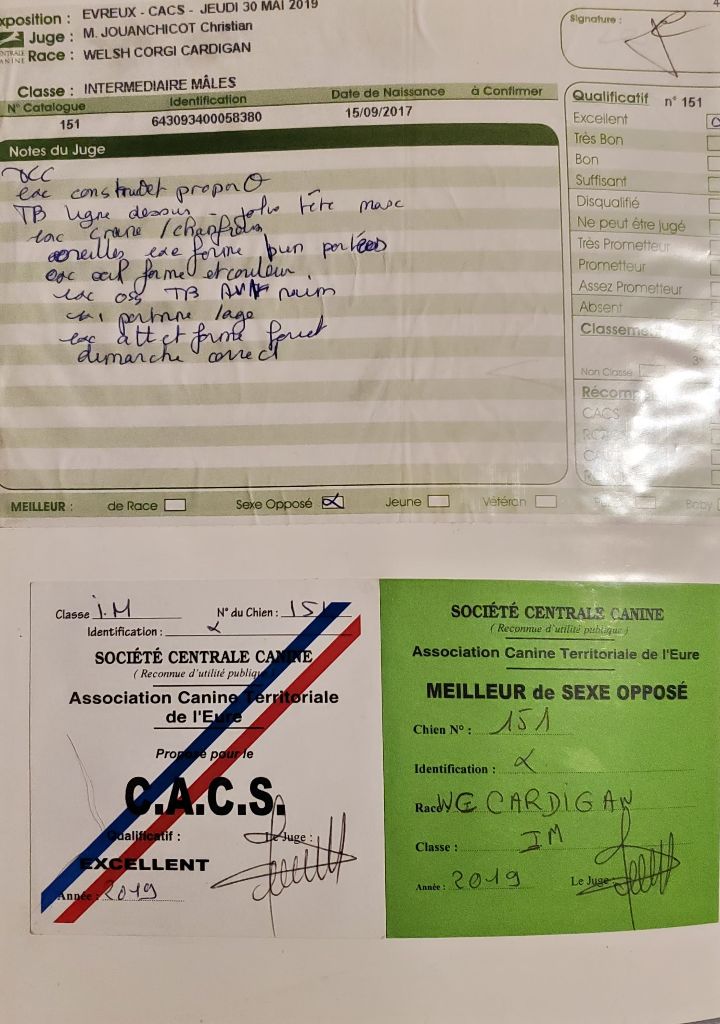 xposition : EVREUX - CACS - JEUDI 30 MAI 2019
Juge : M. JOUANCHICOT Christian
Race : WELSH CORGI CARDIGAN
Signature :
Classe : INTERMEDIAIRE MÂLES
N° Catalogue Identification Date de Naissance à Confirmer
151 643093400058380 15/09/2017
Notes du Juge
exc construct propor
TB ligne dessus tête masc
exc crane / chanfrein
oreilles exc forme bien portées
exc oeil forme et couleur.
exc oss TB
poitrine / age
exc att et forme fouet
démarche correct
Qualificatif n° 151
Excellent
Très Bon
Bon
Suffisant
Disqualifié
Ne peut être jugé
Très Prometteur
Prometteur
Assez Prometteur
Absent
Classeme
Non Classé
Récomp
CACS
MEILLEUR : de Race Sexe Opposé Jeune Vétéran Baby
Classe I.M N° du Chien : 151
Identification :
SOCIÉTÉ CENTRALE CANINE
( Reconnue d'utilité publique
Association Canine Territoriale
de l'Eure
Proposé pour le
C.A.C.S.
Qualificatif : Le Juge :
EXCELLENT
Année : 2019
SOCIÉTÉ CENTRALE CANINE
( Reconnue d'utilité publique )
Association Canine Territoriale de l'Eure
MEILLEUR de SEXE OPPOSÉ
Chien N° : 151
Identification :
Race WC CARDIGAN
Classe : IM
Année : 2019 Le Juge :